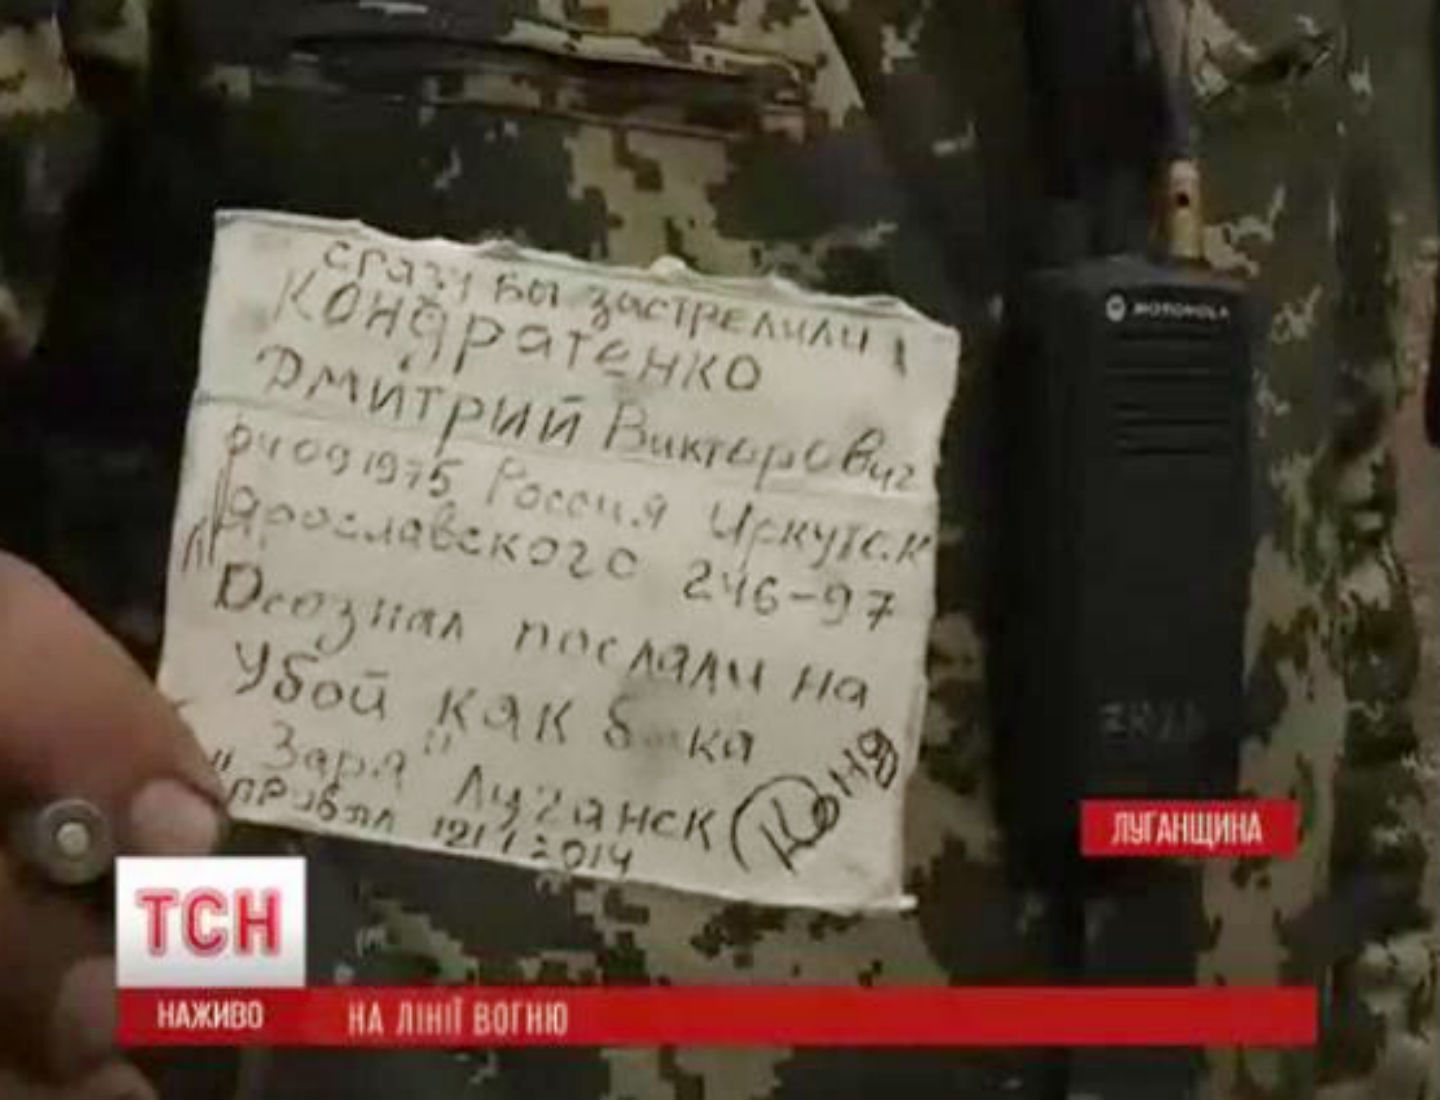 сразу бы застрелили
Кондратенко
Дмитрий Викторович
04091975 Россия Иркутск
Ярославского 246-97
Осознал послали на
убой как
"Заря" Луганск
прибыл 1212014
Коня
MOTOROLA
ЛУГАНЩИНА
ТСН
НАЖИВО
НА ЛІНІЇ ВОГНЮ